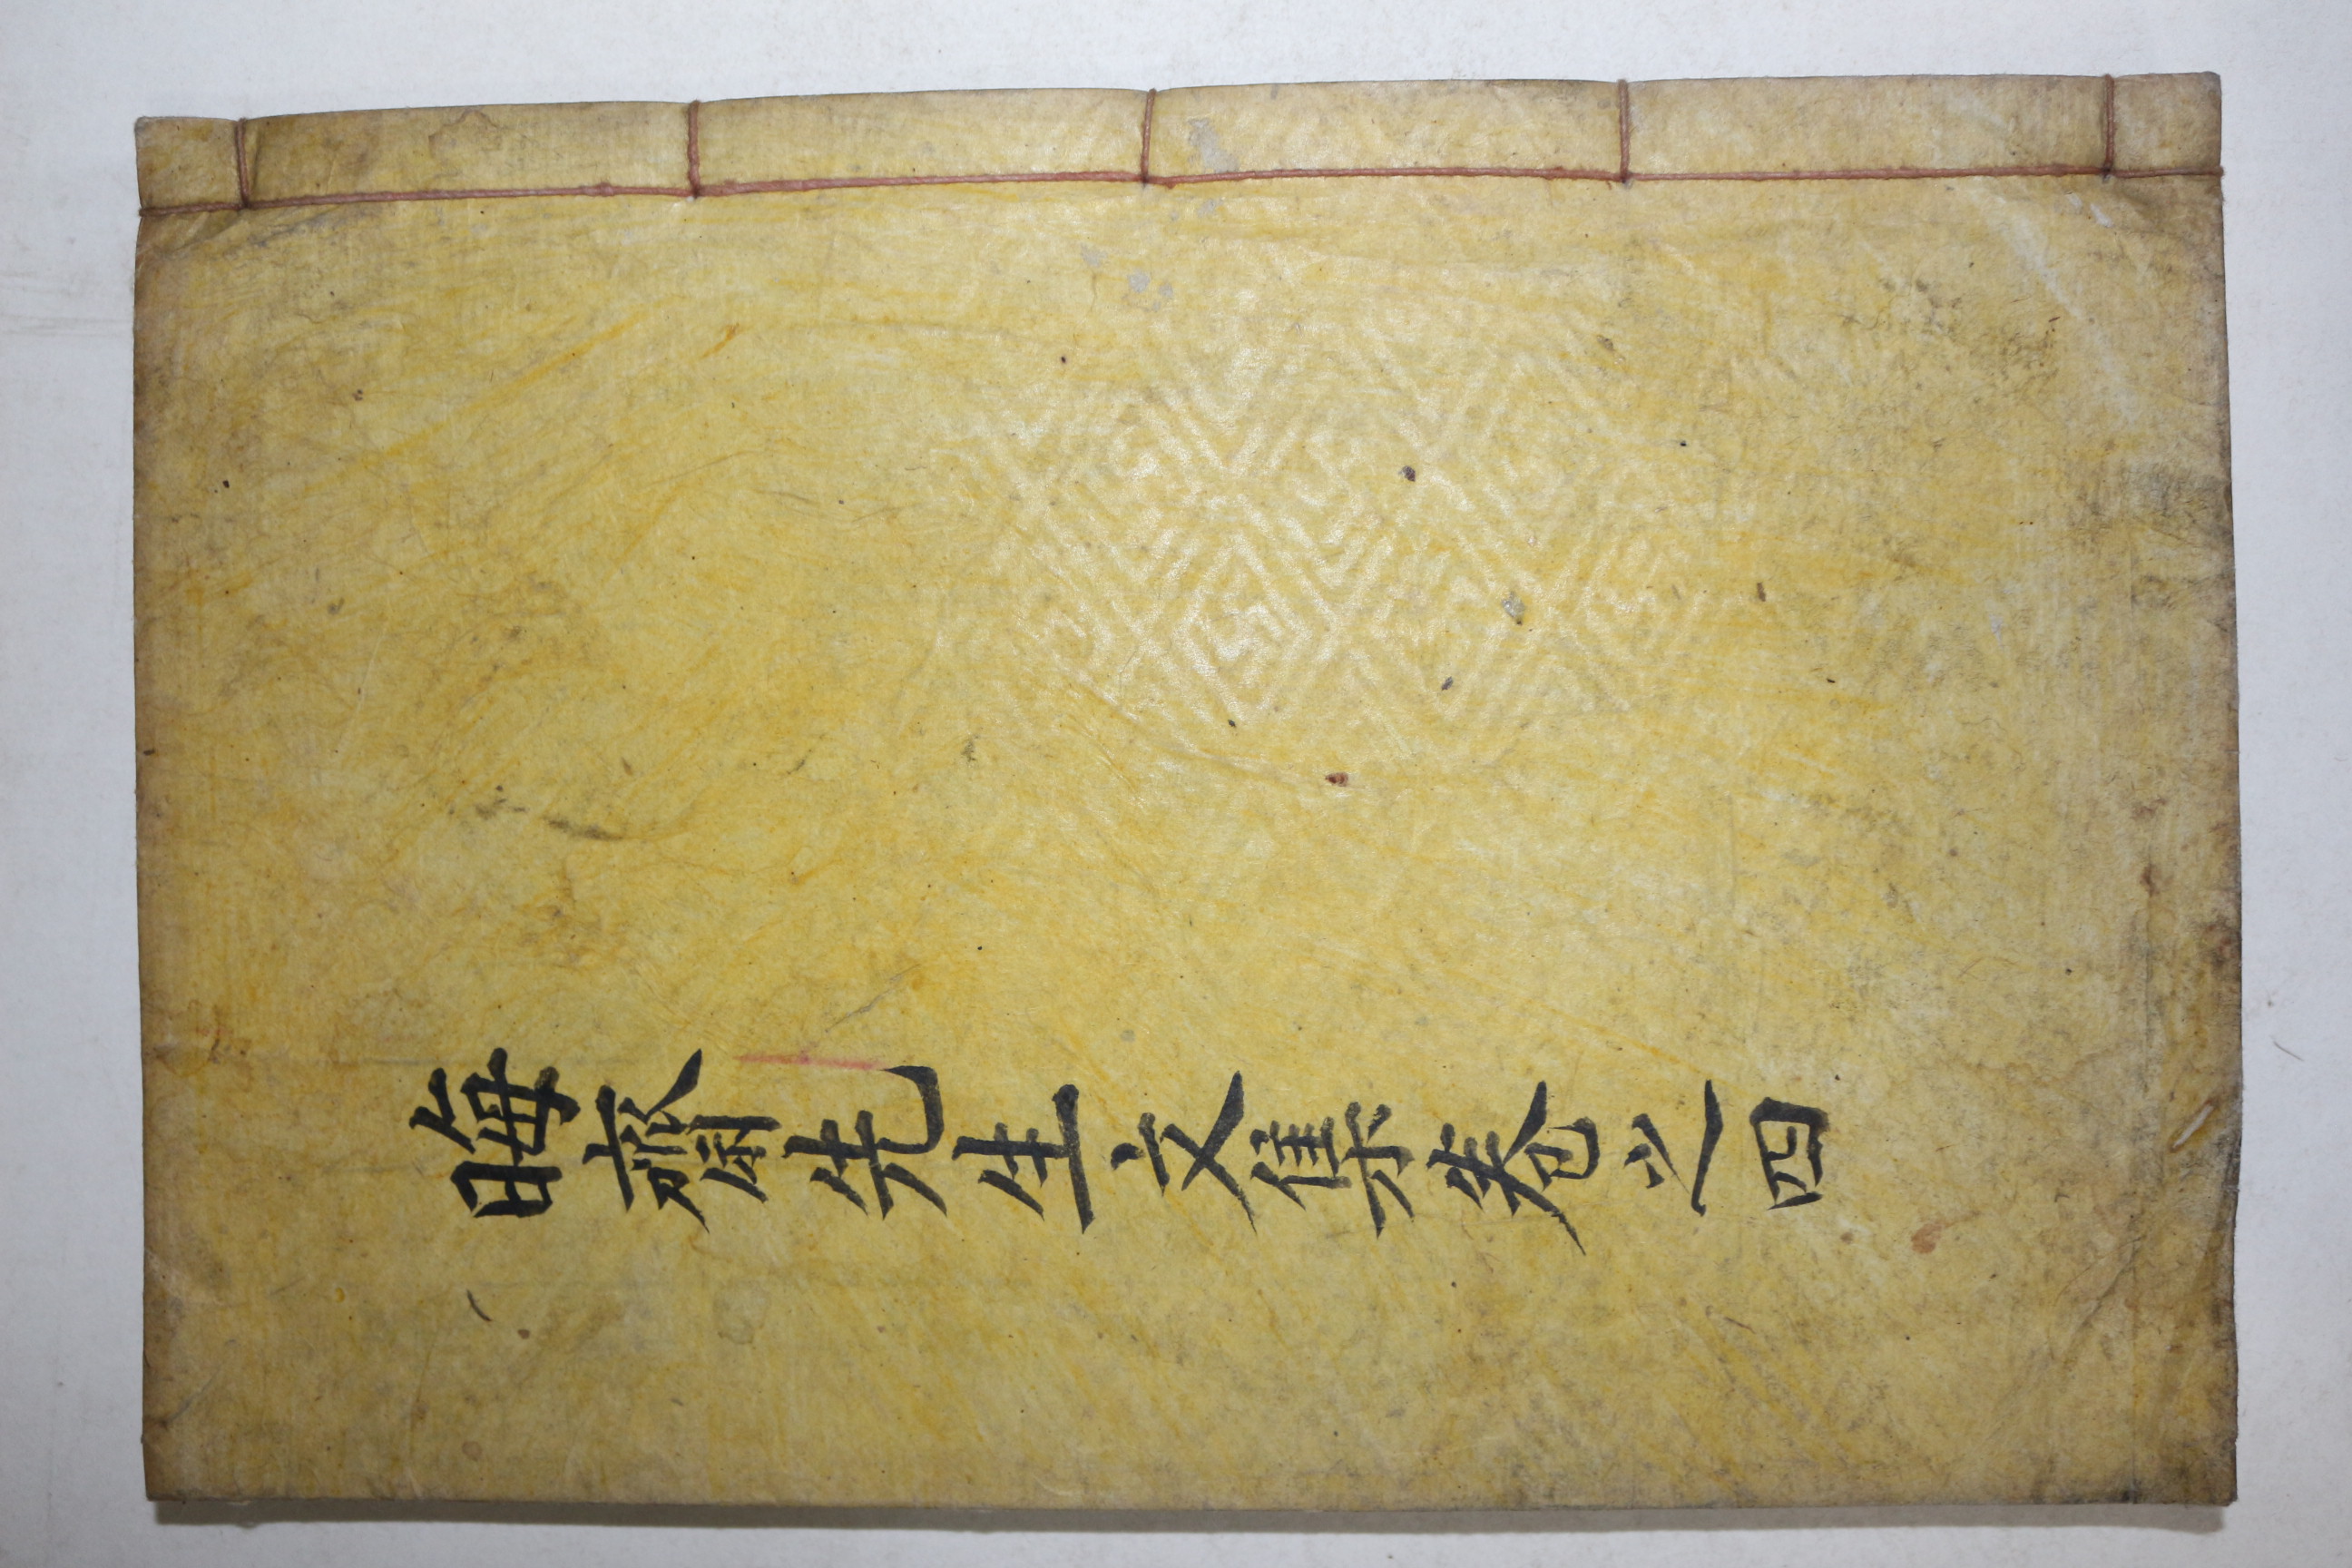 晦齋先生文集卷之四